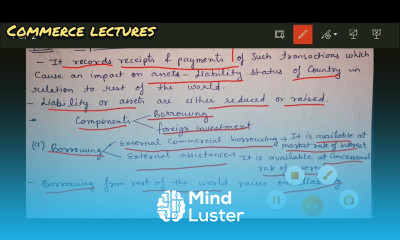 COMMERCE LECTURES
- It records receipts & payments of such transactions which
Cause an impact on assets - Liability status of Country in
relation to rest of the world.
- Liability or assets are either reduced or raised.
- Components Borrowing
foreign investment
(a) Borrowing External Commercial borrowing → It is available at
market rate of interest
External assistance → It is available at Concessional
rate of
- Borrowing from rest of the world raises our liability
Mind
Luster